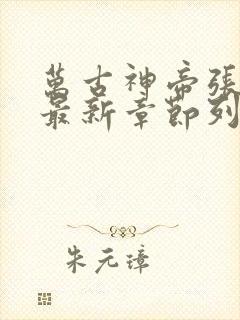 萬古神帝張
最新章節列
朱元璋